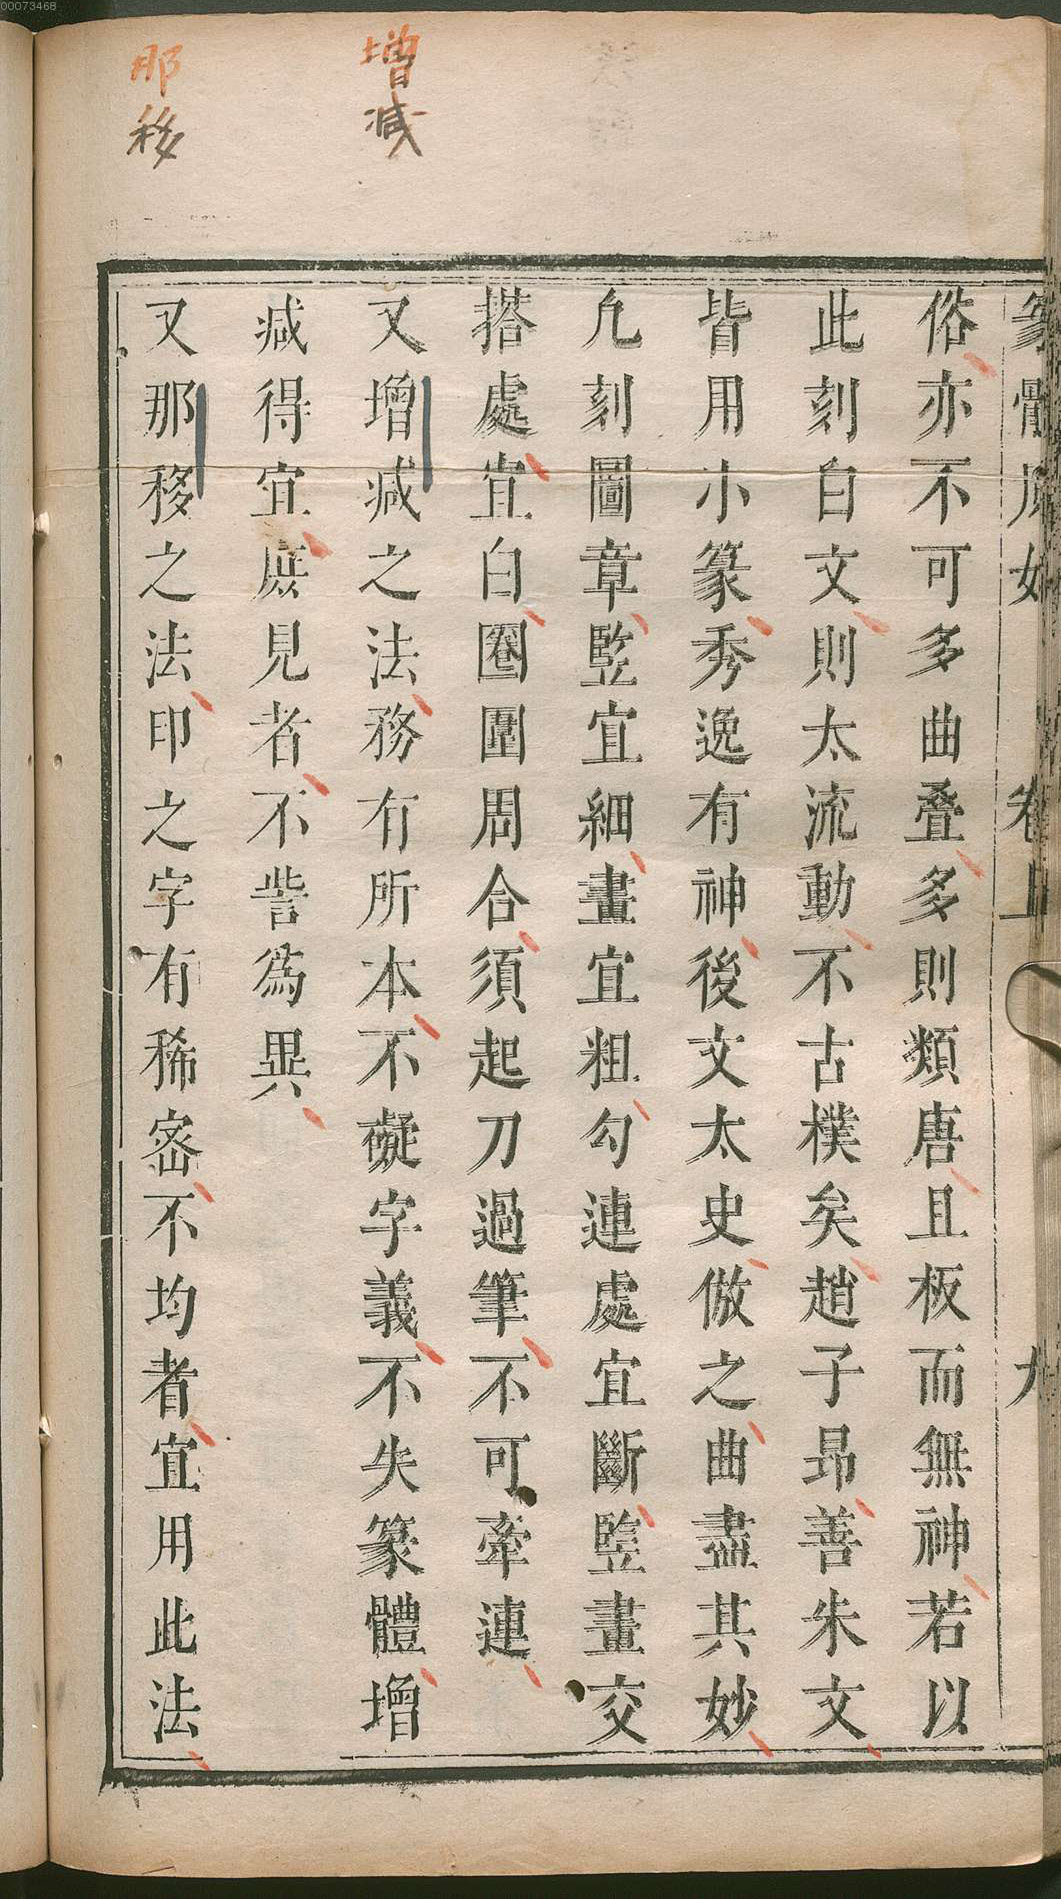 00073468
增減
那移
卷上
九
俗亦不可多曲叠多則類唐且板而無神若以
此刻白文則太流動不古樸矣趙子昂善朱文
皆用小篆秀逸有神後文太史倣之曲盡其妙
凣刻圖章竪宜細畫宜粗勾連處宜斷竪畫交
搭處宜白圈圍周合須起刀過筆不可牽連
又增减之法務有所本不礙字義不失篆體增
减得宜庶見者不訾為異
又那移之法印之字有稀密不均者宜用此法